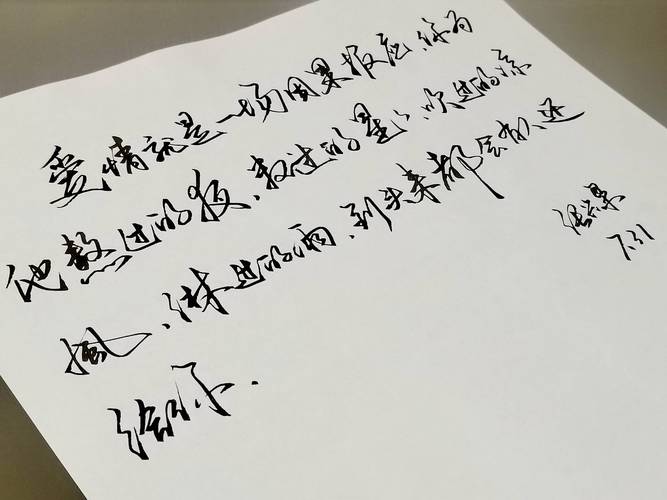 爱情就是一场因果报应、你为
他熬过的夜、数过的星、吹过的凉
风、淋过的雨、到头来都会散还
给你.
7.31